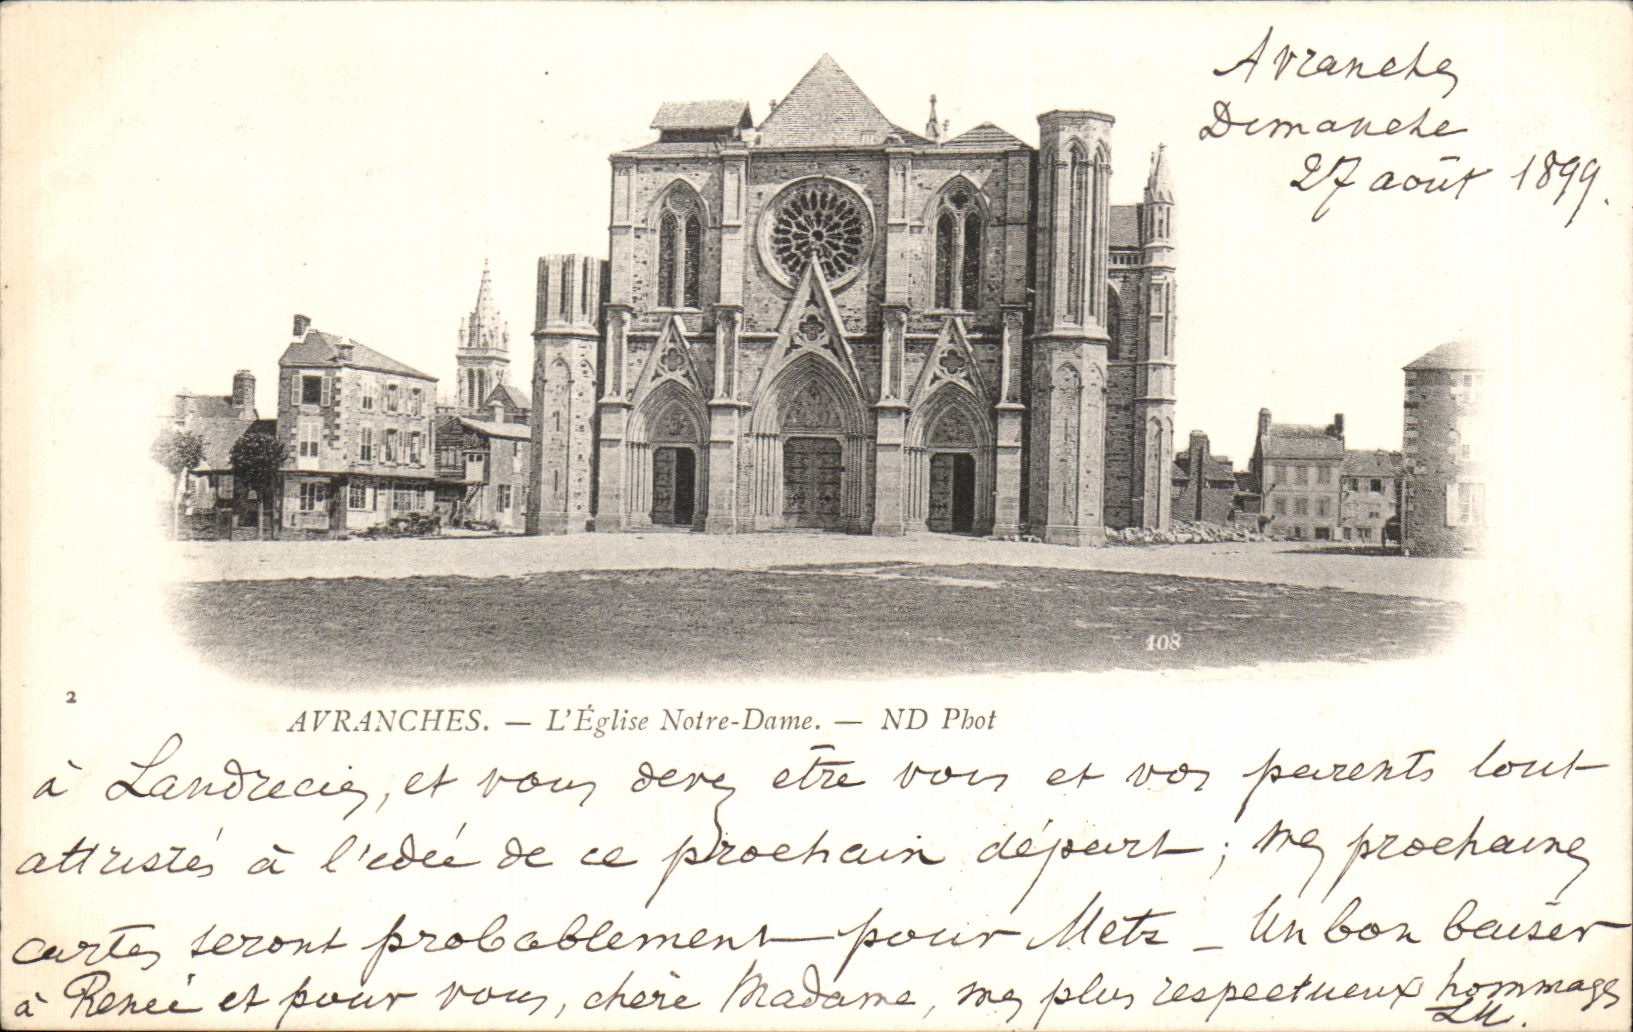 Avranches
Dimanche
27 août 1899.
108
2
AVRANCHES. — L'Église Notre-Dame. — ND Phot
à Landrecies, et vous devez être vous et vos parents tout
attristés à l'idée de ce prochain départ ; mes prochaines
cartes seront probablement pour Metz _ Un bon baiser
à Renée et pour vous, chère Madame, mes plus respectueux hommages